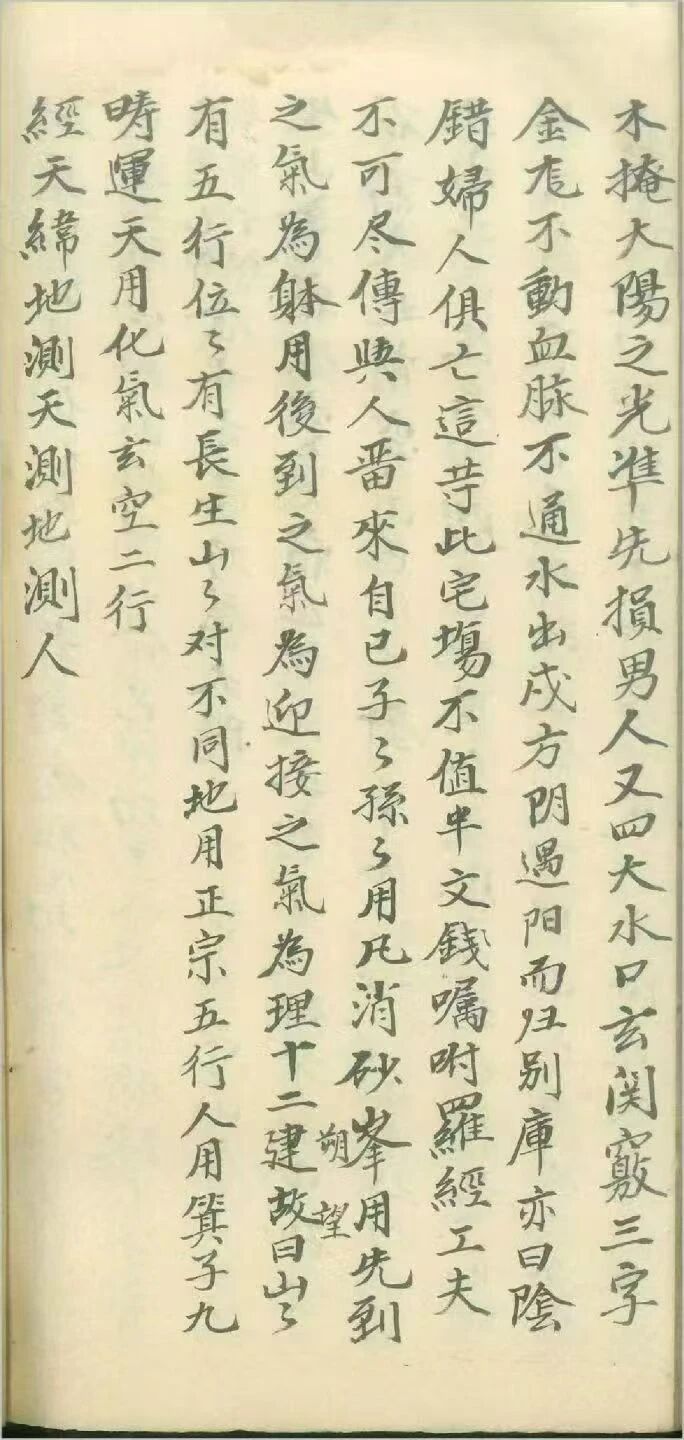 木掩大陽之光準先損男人又四大水口玄関竅三字
金龙不動血脉不通水出戍方阴遇阳而归别庫亦曰陰
錯婦人俱亡這䓁此宅塲不值半文錢嘱咐羅經工夫
不可尽傳與人畱來自已子〻孫〻用凢消砂峯用先到
朔望
之氣為躰用後到之氣為迎接之氣為理十二建故曰山〻
有五行位〻有長生山〻对不同地用正宗五行人用箕子九
畴運天用化氣玄空二行
經天緯地測天測地測人